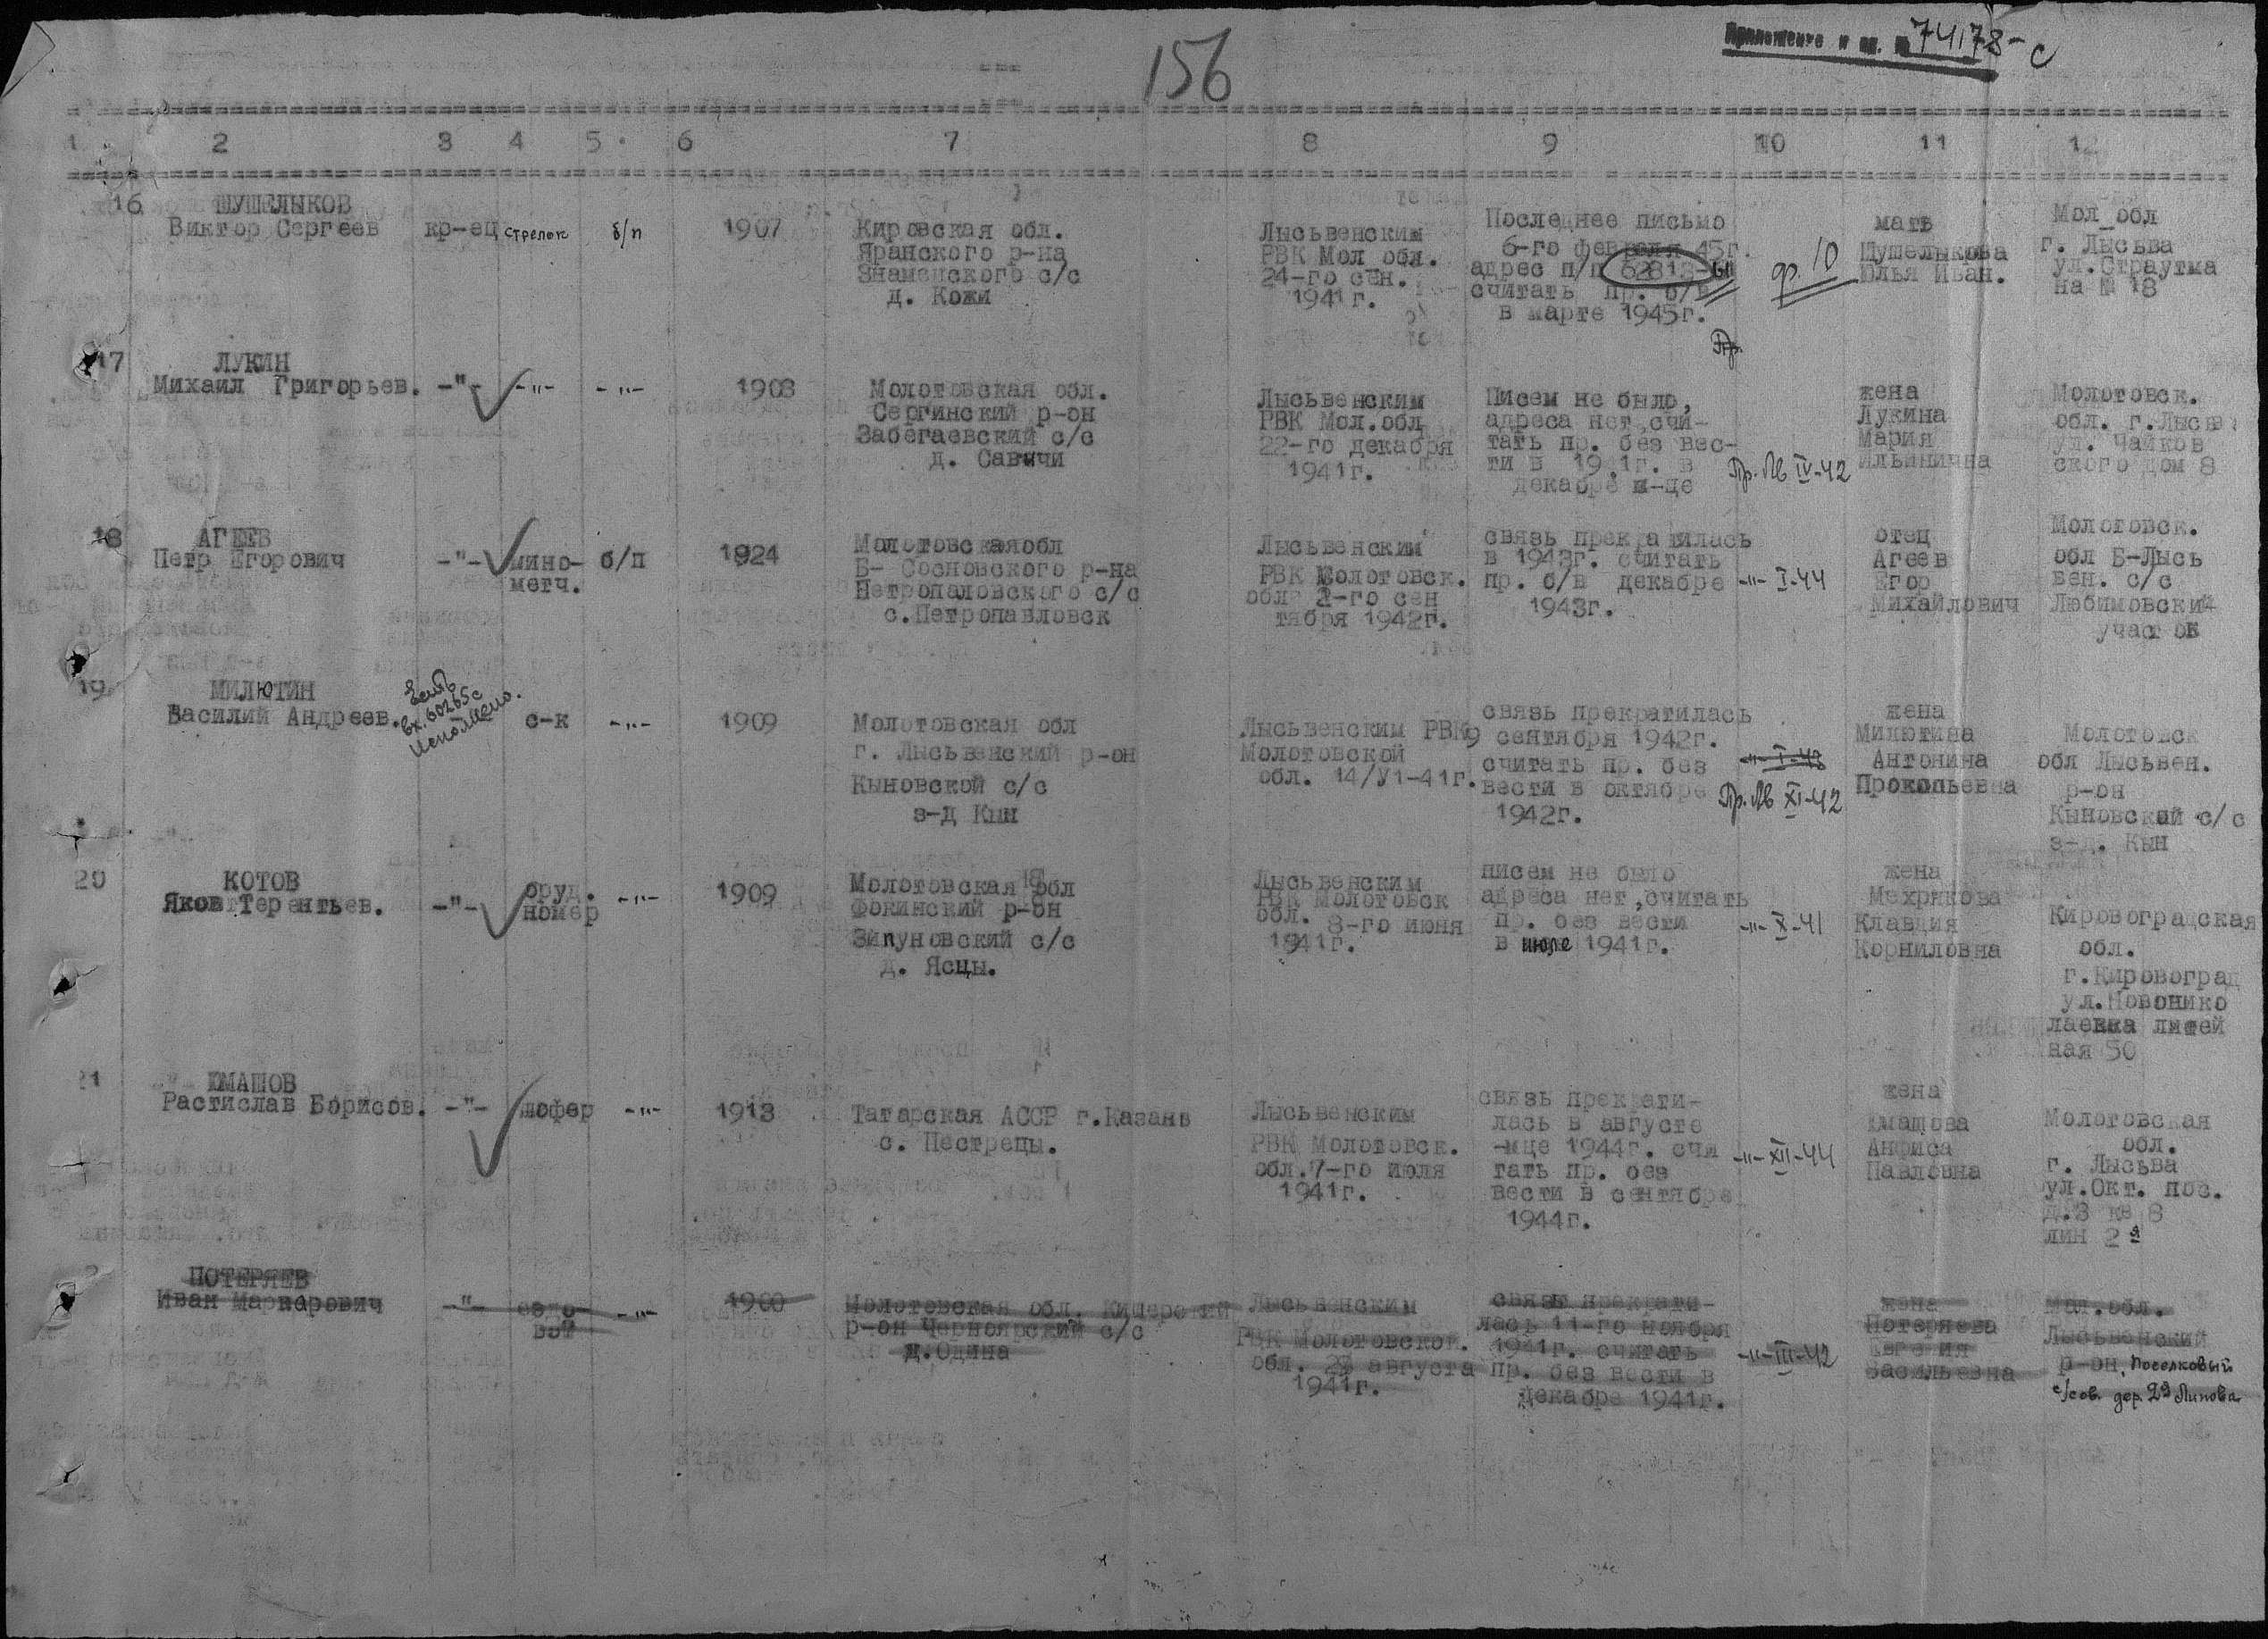 156
Приложение к вх. № 74178-с
1 2 3 4 5 6 7 8 9 10 11 12
16 ШУШЕЛЫКОВ
Виктор Сергеев кр-ец стрелок б/п 1907
Кировская обл.
Яранского р-на
Знаменского с/с
д. Кожи
Лысьвенским
РВК Мол обл.
24-го сен.
1941г.
Последнее письмо
6-го февраля 45г.
адрес п/п 62813-
считать пр. б/в
в марте 1945г.
ф. 10
мать
Шушелыкова
Юлья Иван.
Мол обл
г. Лысьва
ул.Страутма
на № 18
Пр.
17 ЛУКИН
Михаил Григорьев. -"- -"- -"- 1903
Молотовская обл.
Сергинский р-он
Забегаевский с/с
д. Савичи
Лысьвенским
РВК Мол.обл
22-го декабря
1941г.
Писем не было,
адреса нет,счи-
тать пр. без вес-
ти в 1941г. в
декабре м-це
Пр. Лв IV-42
жена
Лукина
Мария
Ильинична
Молотовск.
обл. г.Лысьв
ул. Чайков
ского дом 8
18 АГЕЕВ
Петр Егорович -"- мино- б/п 1924
метч.
Молотовскаяобл
Б- Сосновского р-на
Петропаловского с/с
с.Петропавловск
Лысьвенский
РВК Молотовск.
обл 2-го сен
тября 1942г.
связь прекратилась
в 1943г. считать
пр. б/в декабре
1943г.
-"- I-44
отец
Агеев
Егор
Михайлович
Молотовск.
обл Б-Лысь
вен. с/с
Любимовский
участок
19 МИЛЮТИН
Василий Андреев. с-к -"- 1909
вх.60265с
Молотовская обл
г. Лысьвенский р-он
Кыновской с/с
з-д Кын
Лысьвенским РВК
Молотовской
обл. 14/У1-41г.
связь прекратилась
9 сентября 1942г.
считать пр. без
вести в октябре
1942г.
-"- I-43
Пр. Лв XI-42
жена
Милютина
Антонина
Прокопьевна
Молотовск
обл Лысьвен.
р-он
Кыновской с/с
з-д. Кын
20 КОТОВ
Яков Терентьев. -"- оруд. -"- 1909
номер
Молотовская обл
Фокинский р-он
Зипуновский с/с
д. Ясцы.
Лысьвенским
РВК Молотовск
обл. 8-го июня
1941г.
писем не было
адреса нет,считать
пр. без вести
в июле 1941г.
-"- X-41
жена
Мехрякова
Клавдия
Корниловна
Кировоградская
обл.
г.Кировоград
ул.Новонико
лаевка литей
ная 50
21 ЮМАШОВ
Растислав Борисов. -"- шофер -"- 1913
Татарская АССР г.Казань
с. Пестрецы.
Лысьвенским
РВК Молотовск.
обл.7-го июля
1941г.
связь прекрати-
лась в августе
-мце 1944г. счи
тать пр. без
вести в сентябре
1944г.
-"- XII-44
жена
Юмашова
Анфиса
Павловна
Молотовская
обл.
г. Лысьва
ул.Окт. пос.
д.3 кв 8
лин 2я
ПОТЕРЯЕВ
Иван Маркарович -"- ездо- -"- 1900
вой
Молотовская обл. Кишерский
р-он Черноярский с/с
д.Одина
Лысьвенским
РВК Молотовской.
обл. августа
1941г.
связь прекрати-
лась 11-го ноября
1941г. считать
пр. без вести в
декабре 1941г.
-"- III-42
жена
Потеряева
Евгения
Васильевна
Мол.обл.
Лысьвенский
р-он, поселковый
с/сов. дер. 2я Липовая